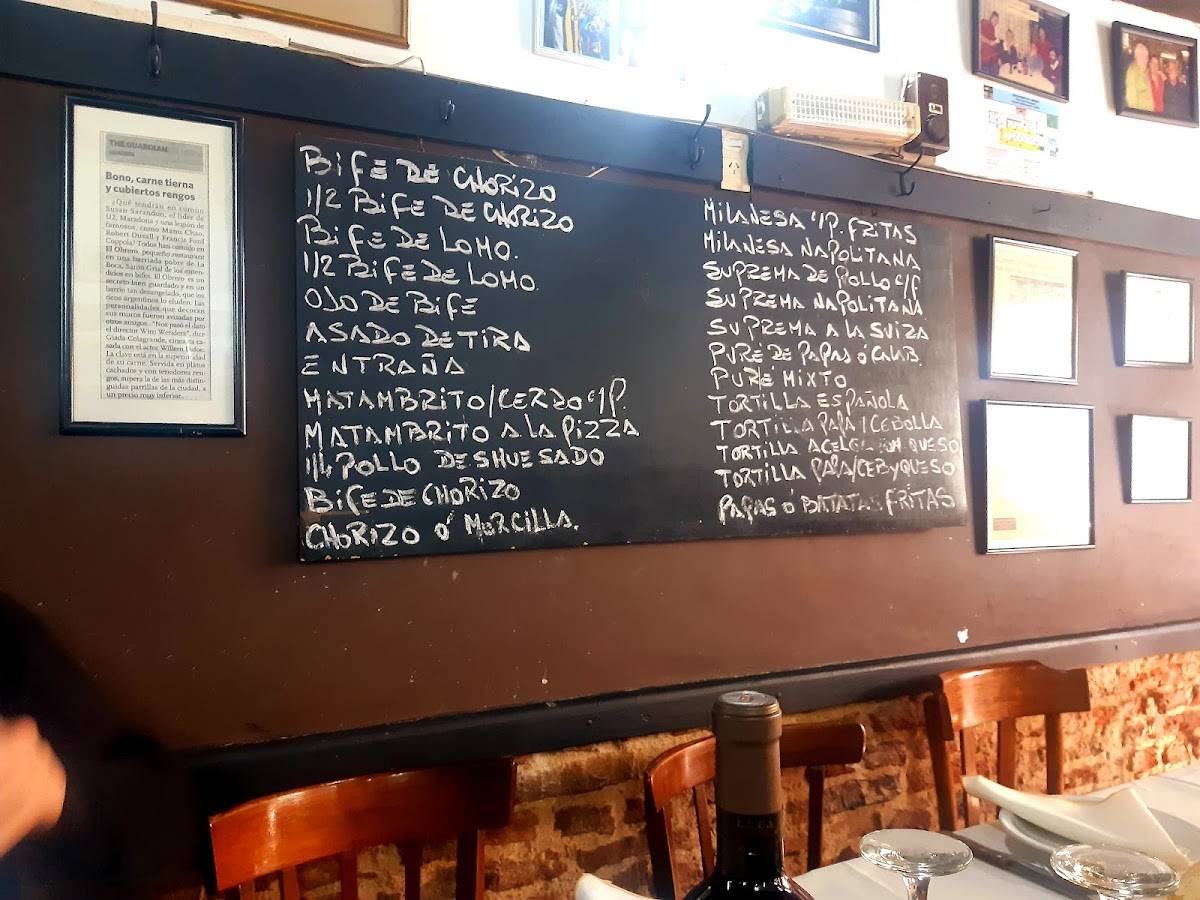 THE GUARDIAN
LONDRES
Bono, carne tierna
y cubiertos rengos
¿Qué tendrán en común
Susan Sarandon, el líder de
U2, Maradona y una legión de
famosos, como Manu Chao,
Robert Duvall y Francis Ford
Coppola? Todos han comido en
El Obrero, pequeño restaurant
en una barriada pobre de La
Boca, Santo Grial de los enten-
didos en bifes. El Obrero es un
secreto bien guardado y en un
barrio tan desangelado, que los
ricos argentinos lo eluden. Las
personalidades que decoran
sus muros fueron avisadas por
otros amigos. "Nos pasó el dato
el director Wim Wenders", dice
Giada Colagrande, cineasta ca-
sada con el actor Willem Dafoe.
La clave está en la superioridad
de su carne. Servida en platos
cachados y con tenedores ren-
gos, supera la de las más distin-
guidas parrillas de la ciudad, a
un precio muy inferior.
BIFE DE CHORIZO
1/2 BIFE DE CHORIZO
BIFE DE LOMO.
1/2 BIFE DE LOMO.
OJO DE BIFE
ASADO DE TIRA
ENTRAÑA
MATAMBRITO/CERDO C/P.
MATAMBRITO A LA PIZZA
1/4 POLLO DESHUESADO
BIFE DE CHORIZO
CHORIZO Ó MORCILLA.
MILANESA C/P. FRITAS
MILANESA NAPOLITANA
SUPREMA DE POLLO C/F
SUPREMA NAPOLITANA
SUPREMA A LA SUIZA
PURÉ DE PAPAS Ó CALAB.
PURÉ MIXTO
TORTILLA ESPAÑOLA
TORTILLA PAPA/CEBOLLA
TORTILLA ACELGA QUESO
TORTILLA PAPA/CEB Y QUESO
PAPAS Ó BATATAS FRITAS